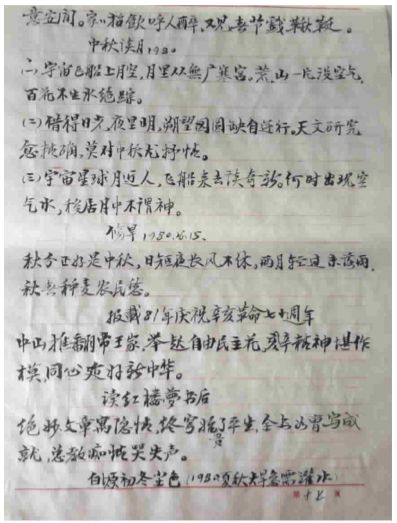 意空间。家以猫飲呼人醉,又见春节戏鞦韆。
中秋谈月1980
(一)宇宙飞船上月空,月里从無广寒宫。荒山一片没空气,
百花不生水绝踪。
(二)借得日光夜里明,朔望圆缺自运行。天文研究
愈精确,莫对中秋尤抒情。
(三)宇宙星球月近人,飞船来去谈奇新。何时出现空
气水,移居月中不谓神。
偹旱1980.10.15.
秋分正好是中秋,日短夜长风不休。两月经过未落雨,
秋禾种麦农民愁。
报载81年庆祝辛亥革命七十周年
中山推翻帝王家,举起自由民主花。辛精神堪作
模,同心爱好新中华。
读红楼夢书后
绝妙文章寓隐情,终写了平生。曹写成
就,总教痴情哭失声。
白塬初冬尘色(1980夏秋大旱急需灌水)
第十七页